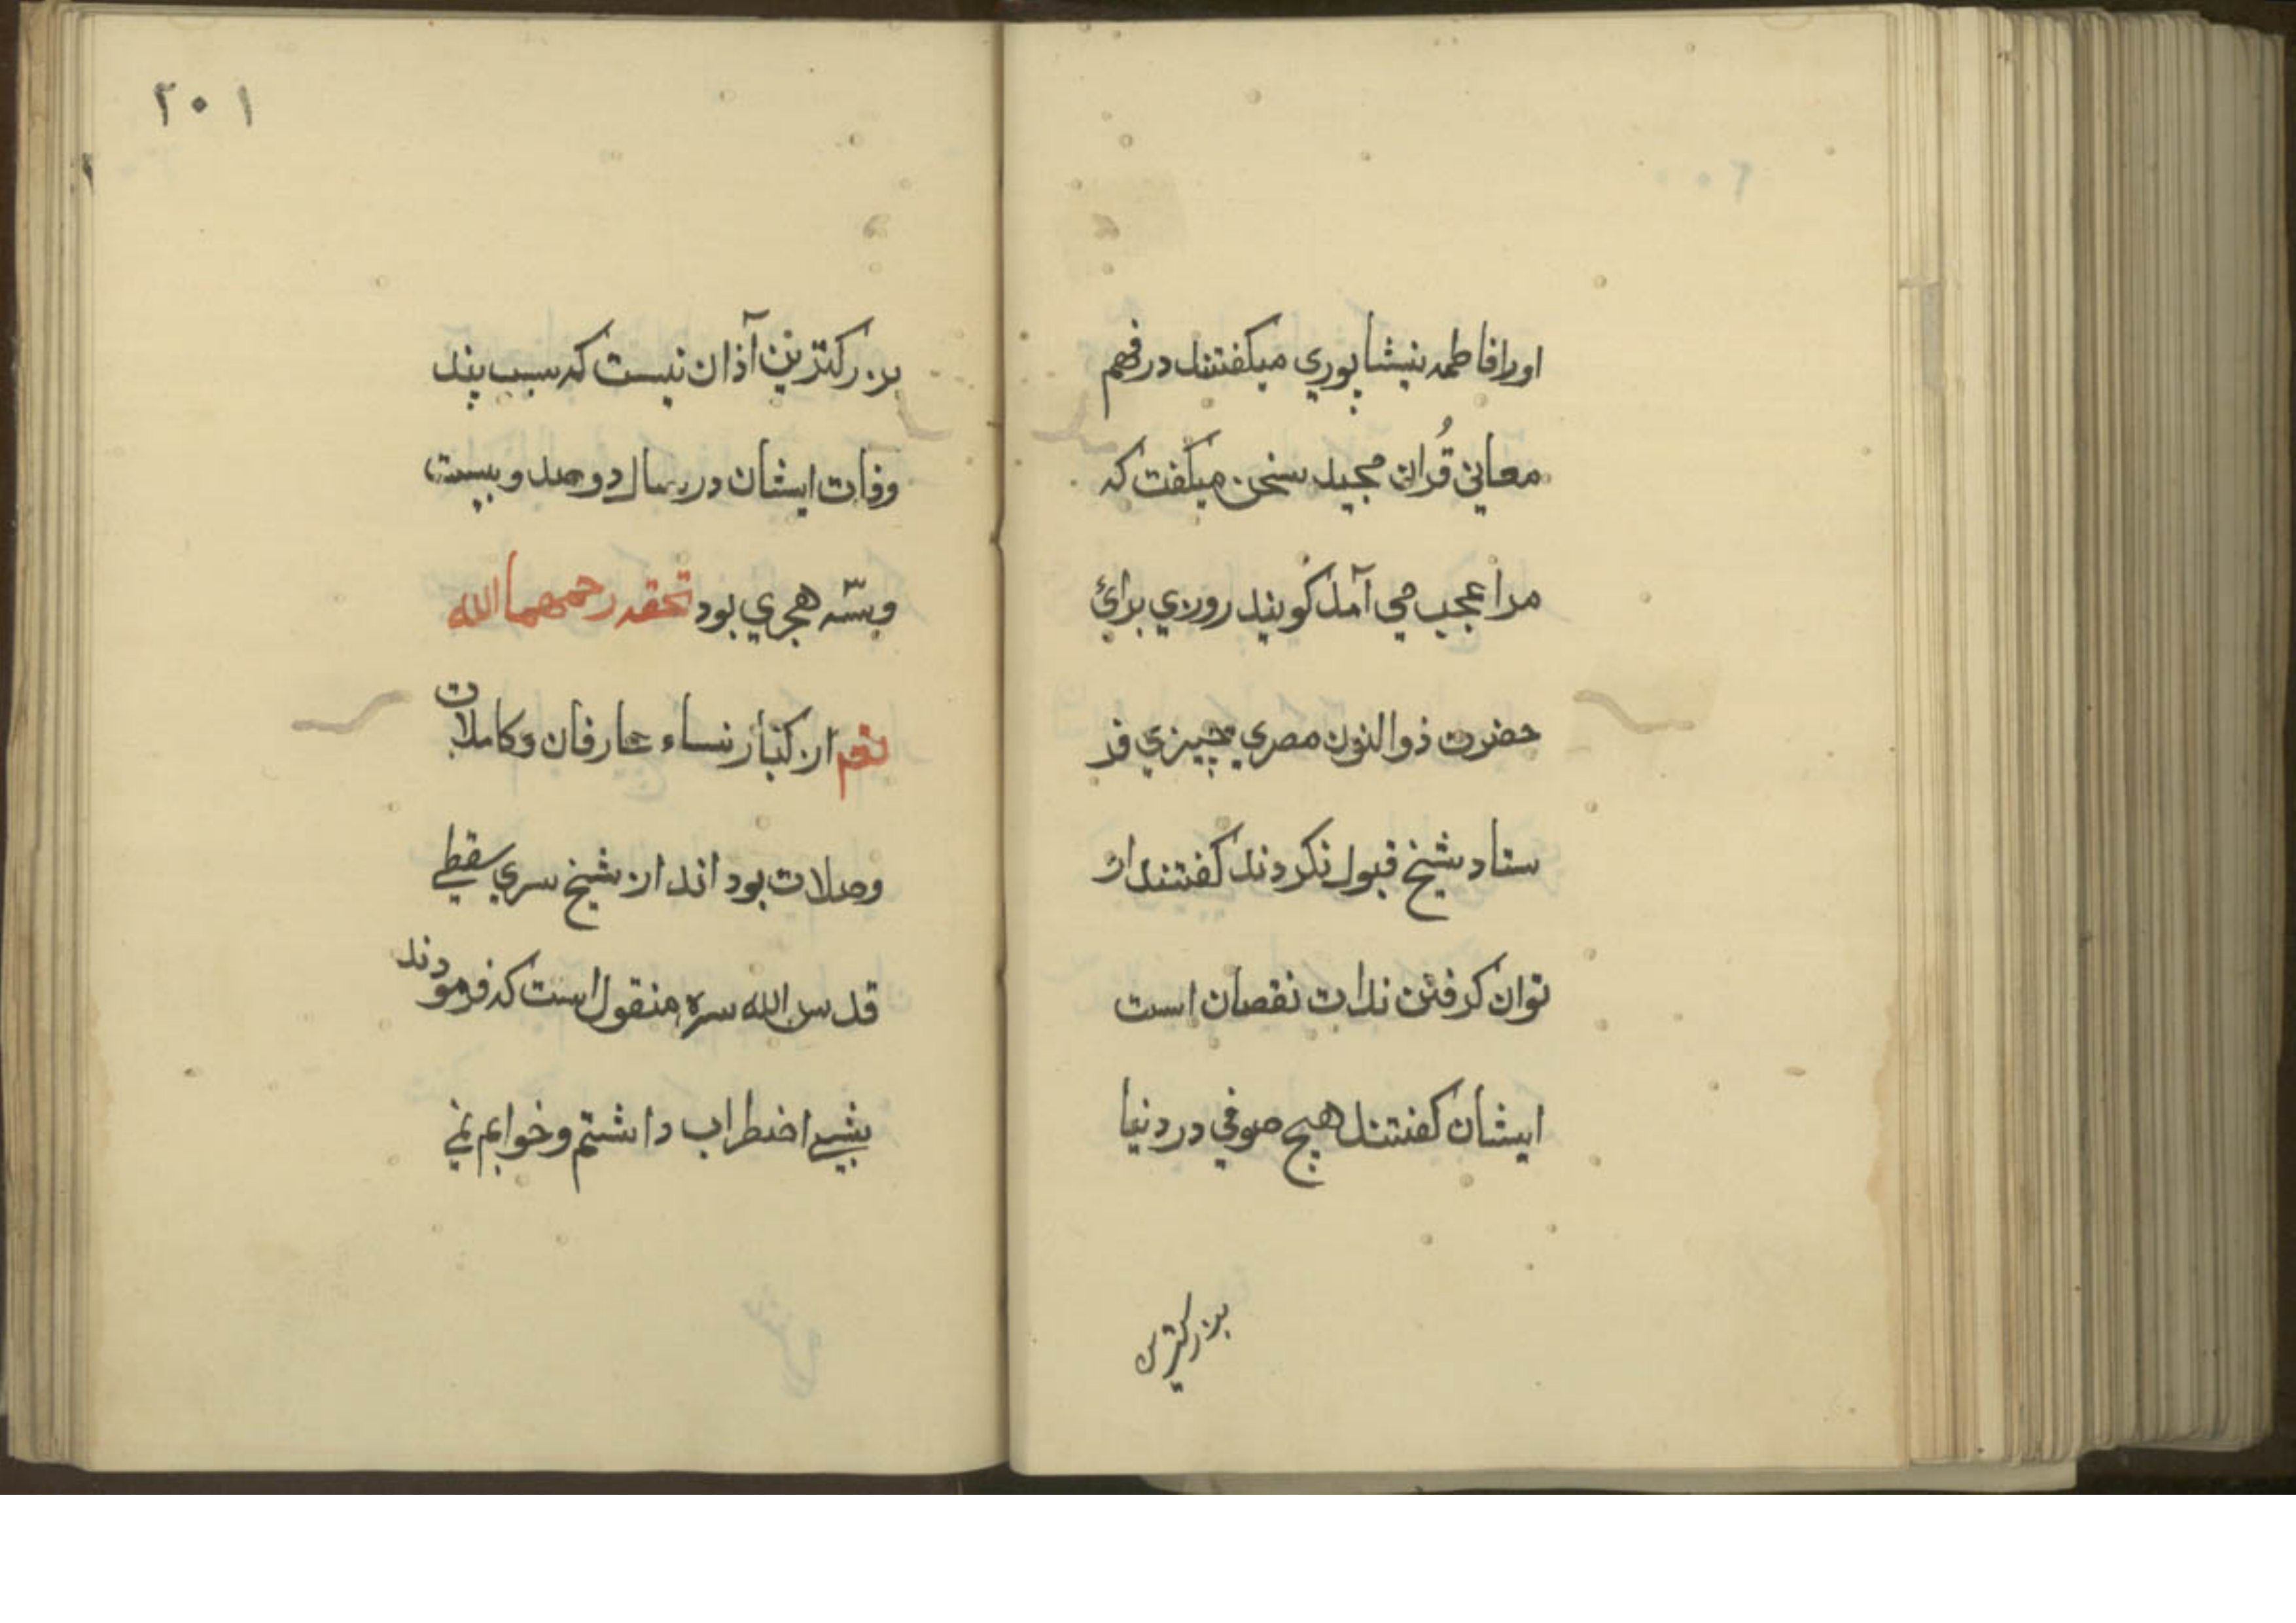 اورافاطمه نیشاپوري میکفتند در فهم
معاني قُران مجید سخن میکفت که
مرا عجب مي آمد کویند روزي برائ
حضرت ذوالنون مصري چیزي فر
ستاد شیخ قبول نکردند کفتند از
توان کرفتن ندات نقصان است
ایشان کفتند هیچ صوفي در دنیا
بزرکترین
۲۰۱
بزرکترین آذان نیست که سبب پند
وفات ایشان در سال دوصد و بیست
وسّه هجري بود تحفه رحمهما الله
از کبار نساء عارفان و کاملات
وصلات بود اند از شیخ سري سقطي
قدس الله سره منقول است که فرمودند
شبي اضطراب داشتم و خوابم نمي